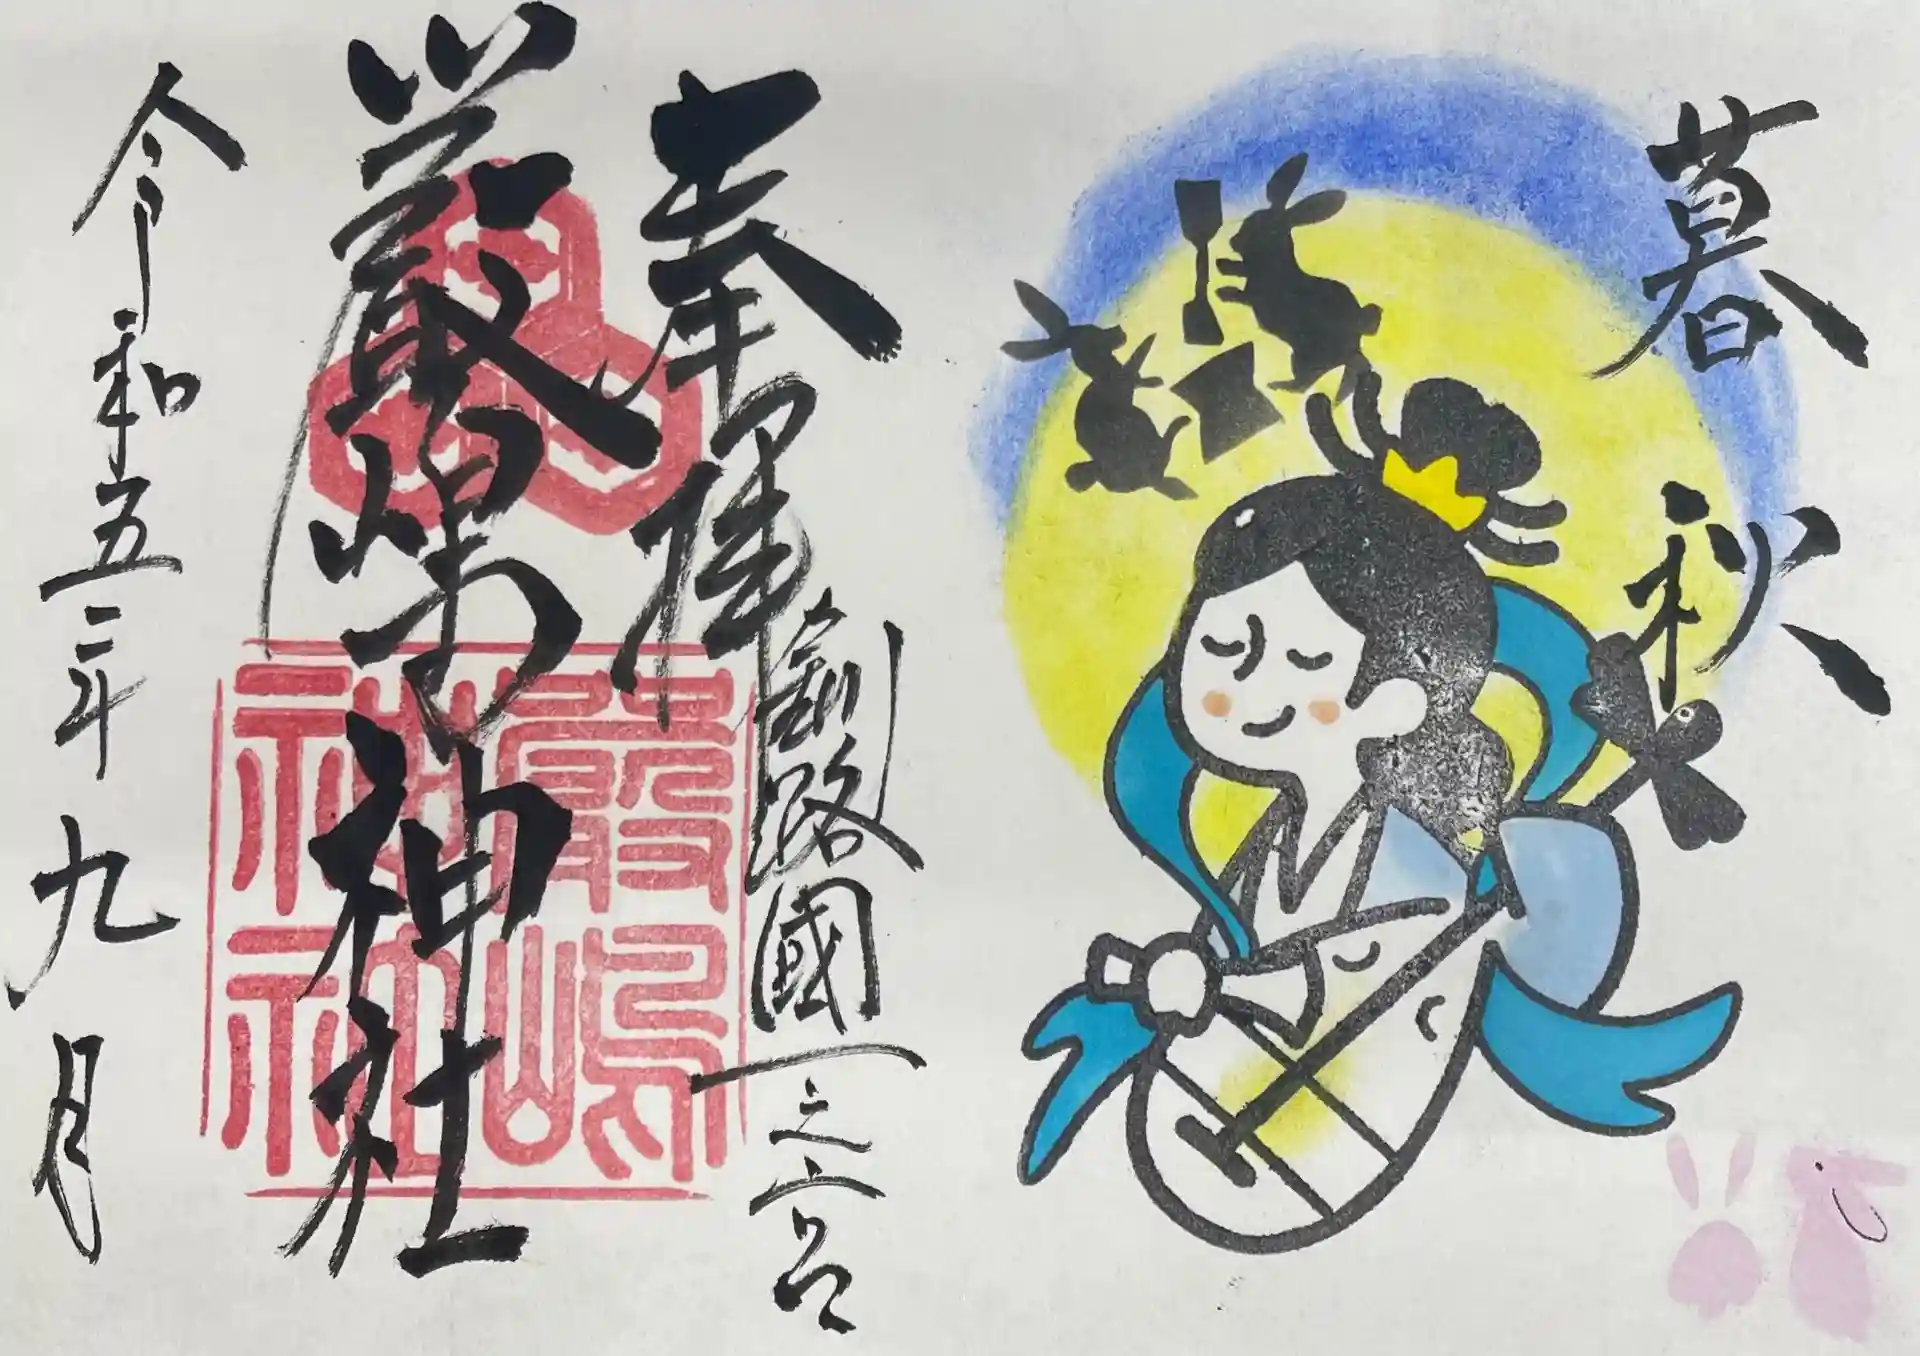 暮秋
奉拝
釧路國一之宮
厳島神社
嚴嶋神社
令和五年九月